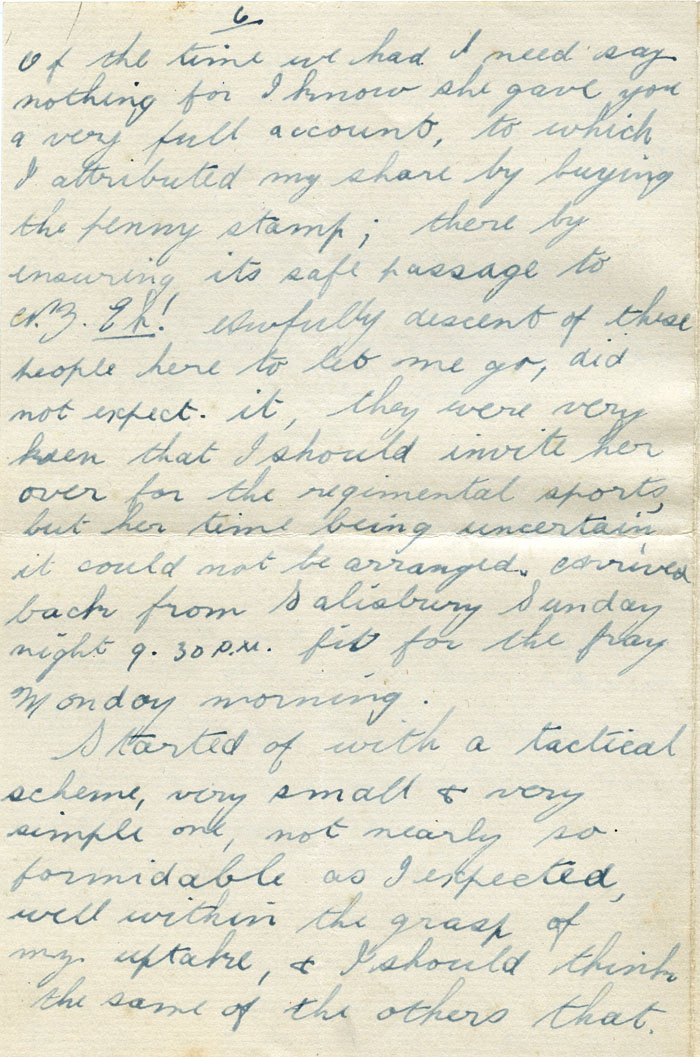 6
Of the time we had I need say
nothing for I know she gave you
a very full account, to which
I attributed my share by buying
the penny stamp; there by
ensuring its safe passage to
N.Z. Eh! awfully descent of these
people here to let me go, did
not expect. it, they were very
keen that I should invite her
over for the regimental sports,
but her time being uncertain
it could not be arranged. arrived
back from Salisbury Sunday
night 9. 30 P.M. fit for the fray
Monday morning.
Started of with a tactical
scheme, very small & very
simple one, not nearly so
formidable as I expected,
well within the grasp of
my uptake, & I should think
the same of the others that.